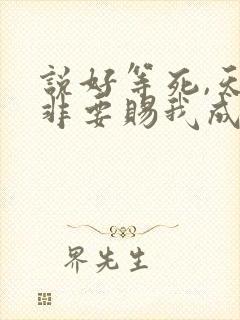 說好等死,天
非要賜我成
界先生